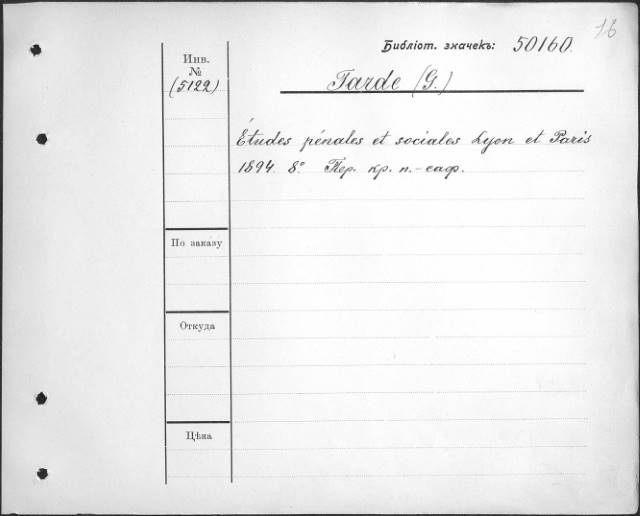 16
Библіот. значекъ: 50160.
Инв.
№
(5122)
Tarde (G.)
Études pénales et sociales Lyon et Paris
1894. 8º. Пер. кр. п.-саф.
По заказу
Откуда
Цѣна